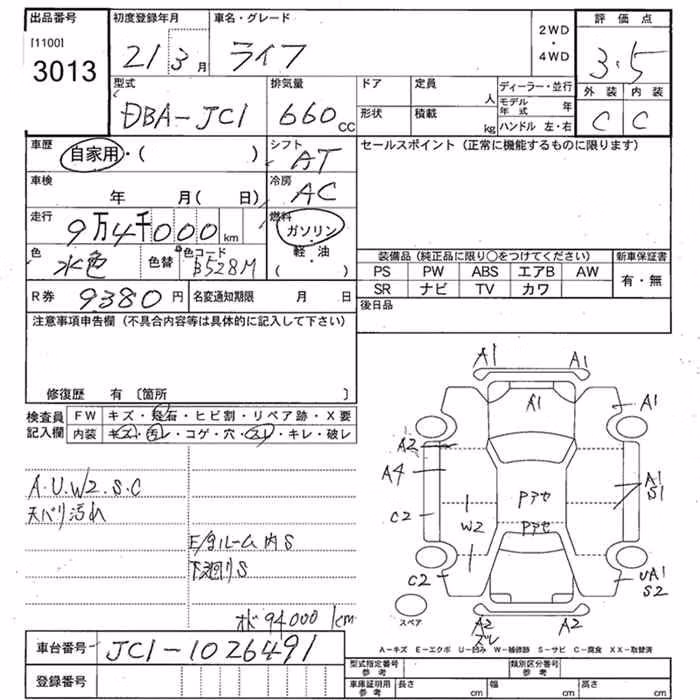 出品番号 初度登録年月 車名・グレード 2WD・4WD 評価点
[1100]
3013 21 3月 ライフ 3.5
型式 排気量 ドア 定員 人 ディーラー・並行 外装 内装
DBA-JC1 660 CC 形状 積載 kg モデル年式 年 C C
ハンドル 左・右
車歴 自家用・( ) シフト AT セールスポイント (正常に機能するものに限ります)
車検 年 月( 日) 冷房 AC
走行 9万4千000km 燃料 ガソリン・軽油 ( )
色 水色 色替 色コード B528M
装備品 (純正品に限り○をつけてください) 新車保証書
PS PW ABS エアB AW 有・無
SR ナビ TV カワ
R券 9380円 名変通知期限 月 日 後日品
注意事項申告欄 (不具合内容等は具体的に記入して下さい)
修復歴 有 〔箇所 〕
検査員記入欄 FW キズ・飛石・ヒビ割・リペア跡・X要
内装 キズ・汚レ・コゲ・穴・スレ・キレ・破レ
A.U.W2.S.C
天バリ汚れ
E/gルーム内S
下廻りS
メーター 94000km
A1 A1
A1 A1
A2
A4 A1 S1
Pアセ
C2
W2 Pアセ
C2 UA1 S2
スペア A2 ズレ A2
A-キズ E-エクボ U-凹み W-補修跡 S-サビ C-腐食 XX-取替済
車台番号 JC1-1026491
登録番号
型式指定番号 参考 類別区分番号 参考
車庫証明用 参考 長さ cm 幅 cm 高さ cm